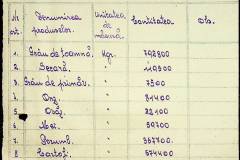 Nr. crt. Denumirea produselor. Unitatea de măsură Cantitatea Obs.
1. Grâu de toamnă. Kgr. 792800
2. Secară. " 119300
3. Grâu de primăv. " 7500
4. Orz. " 81400
5. Ovăz. " 22100
6. Mei. " 59700
7. Porumb. " 367700.
8 Cartof. " 574400